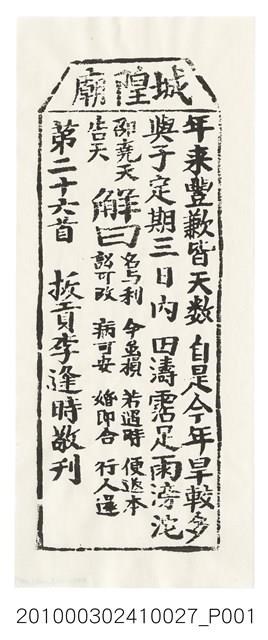 城隍廟
年來豐歉皆天数 自是今年旱較多
與子定期三日內 田濤霑足雨滂沱
邵堯天告天
解曰 名与利 今若損 若過時 便返本
訟可改 病可安 婚即合 行人還
第二十六首 拔貢李逢時敬刊
201000302410027_P001